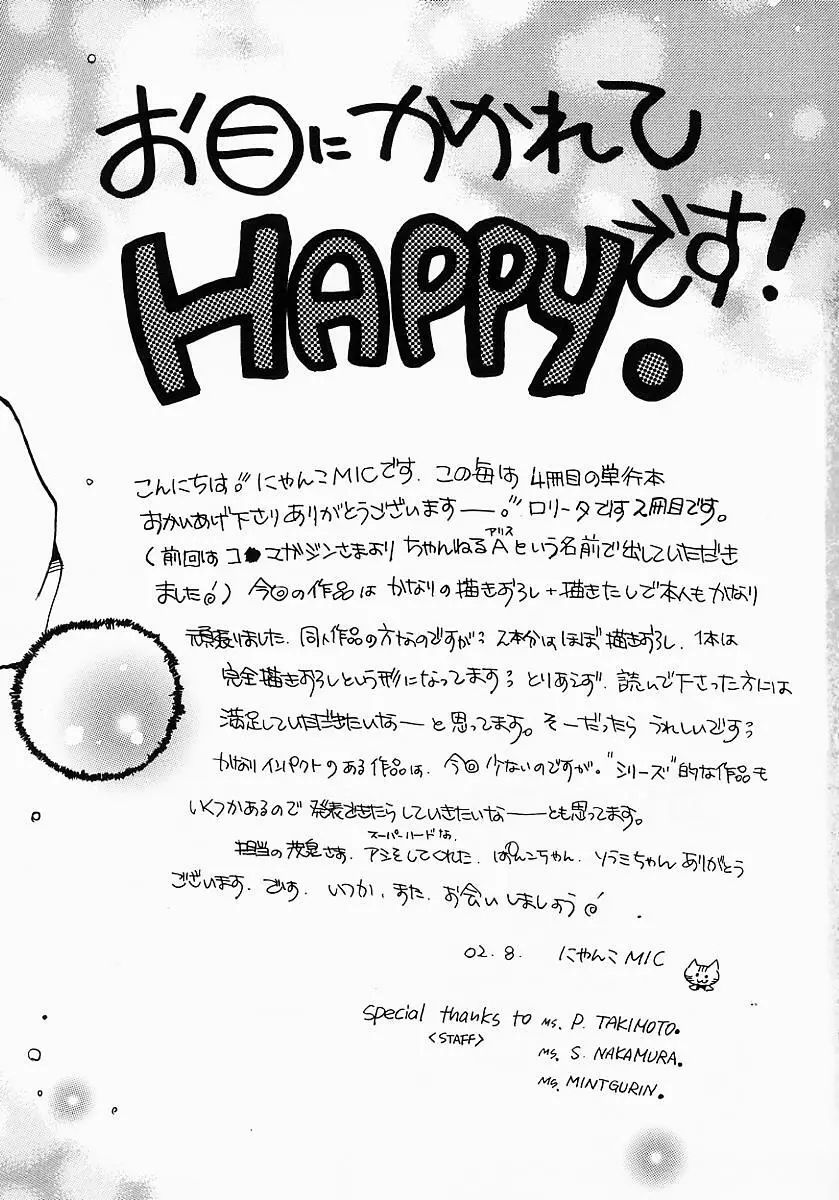 お目にかかれて
HAPPYです!
こんにちは。にゃんこMICです。この毎は4冊目の単行本
おかいあげ下さりありがとうございますー。ロリータです2冊目です。
(前回はコ マガジンさまより ちゃんねるAという名前で出していただき
アリス
ました) 今回の作品は かなりの描きおろし+描きたしで本人もかなり
頑張りました。同人作品の方なのですが; 2本分はほぼ描きおろし、1本は
完全描きおろしという形になってます; とりあえず、読んで下さった方には
満足していただきたいなーと思ってます。そーだったら うれしいです;
かなりインパクトのある作品は、今回少ないのですが。"シリーズ"的な作品も
いくつかあるので 発表できたらしていきたいなーとも思ってます。
スーパーハードな
担当の さま、アシをしてくれた、ぱんこちゃん、ソラミちゃん ありがとう
ございます。です。いつか、また、お会いしましょう
02.8. にゃんこMIC
special thanks to Ms. P. TAKIMOTO.
<STAFF>
Ms. S. NAKAMURA.
Ms. MINTGURIN.